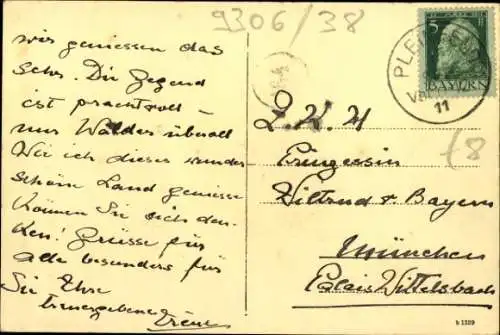 9306/38
wir geniessen das
sehr. Die Gegend
ist prachtvoll -
nur Wälder überall
Wie ich dieses wunder
schöne Land geniesse
können Sie sich den-
ken! Grüsse für
alle besonders für
Sie Ihre
treuergebene
Irene
5
BAYERN
11
I. K. H
Prinzessin
Wiltrud v. Bayern
München
Palais Wittelsbach
18
b 1159